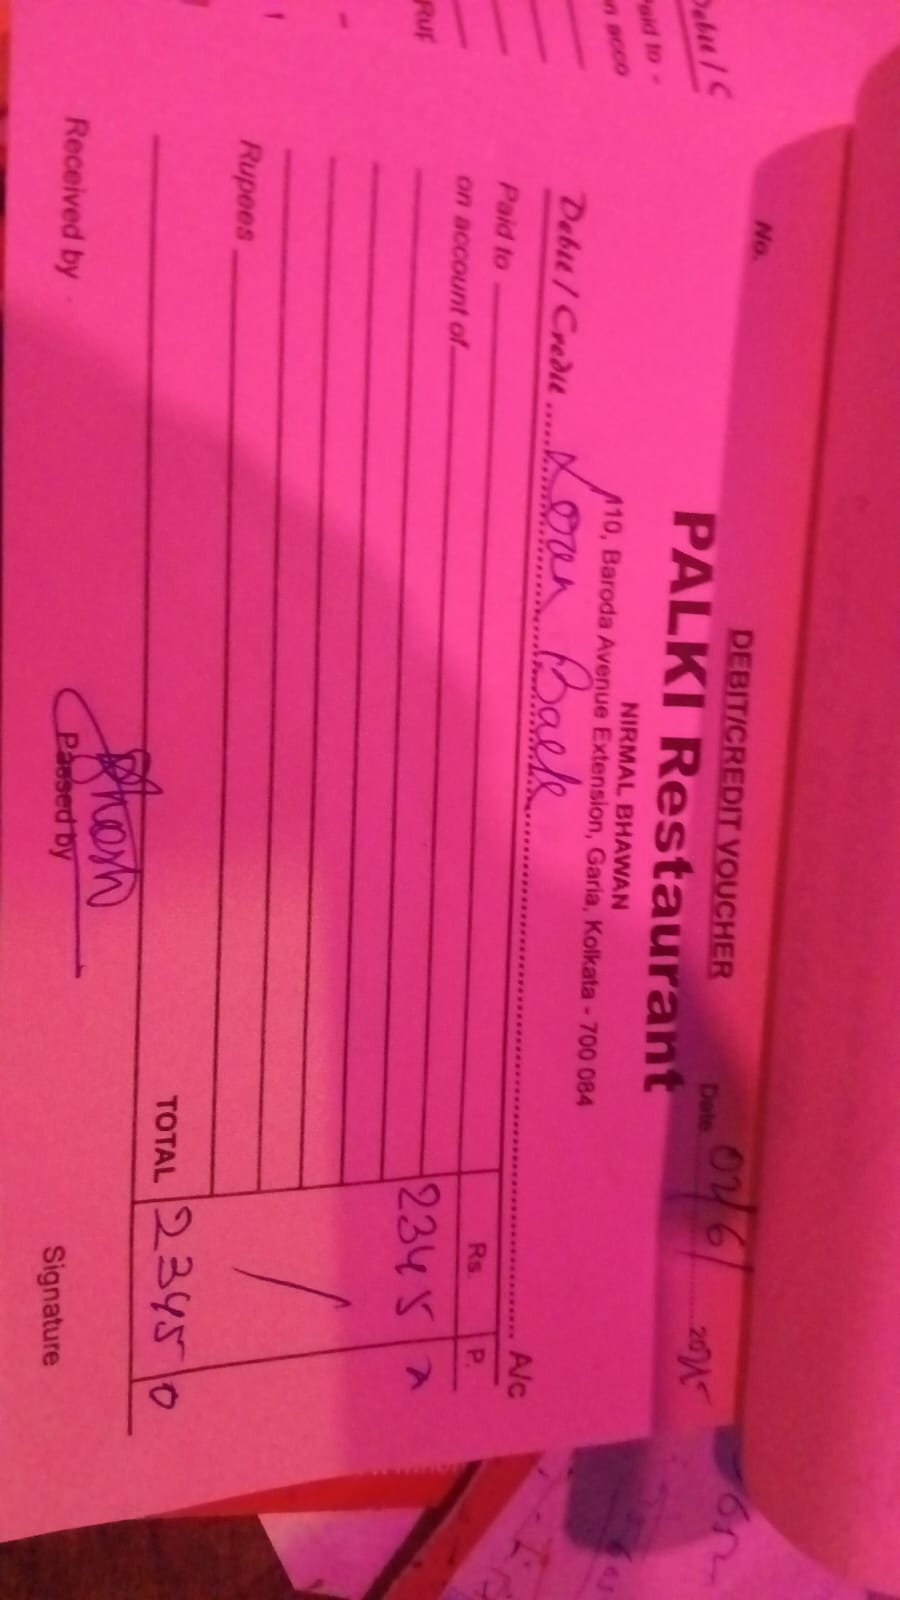 No.
DEBIT/CREDIT VOUCHER
Date 02/6/ 2025
PALKI Restaurant
NIRMAL BHAWAN
110, Baroda Avenue Extension, Garia, Kolkata - 700 084
Debit / Credit Loan Back A/c
Paid to
on account of Rs. P.
2345
Rupees
TOTAL 2345 0
Received by
Passed by
Signature
Debit / C
Paid to -
n acco